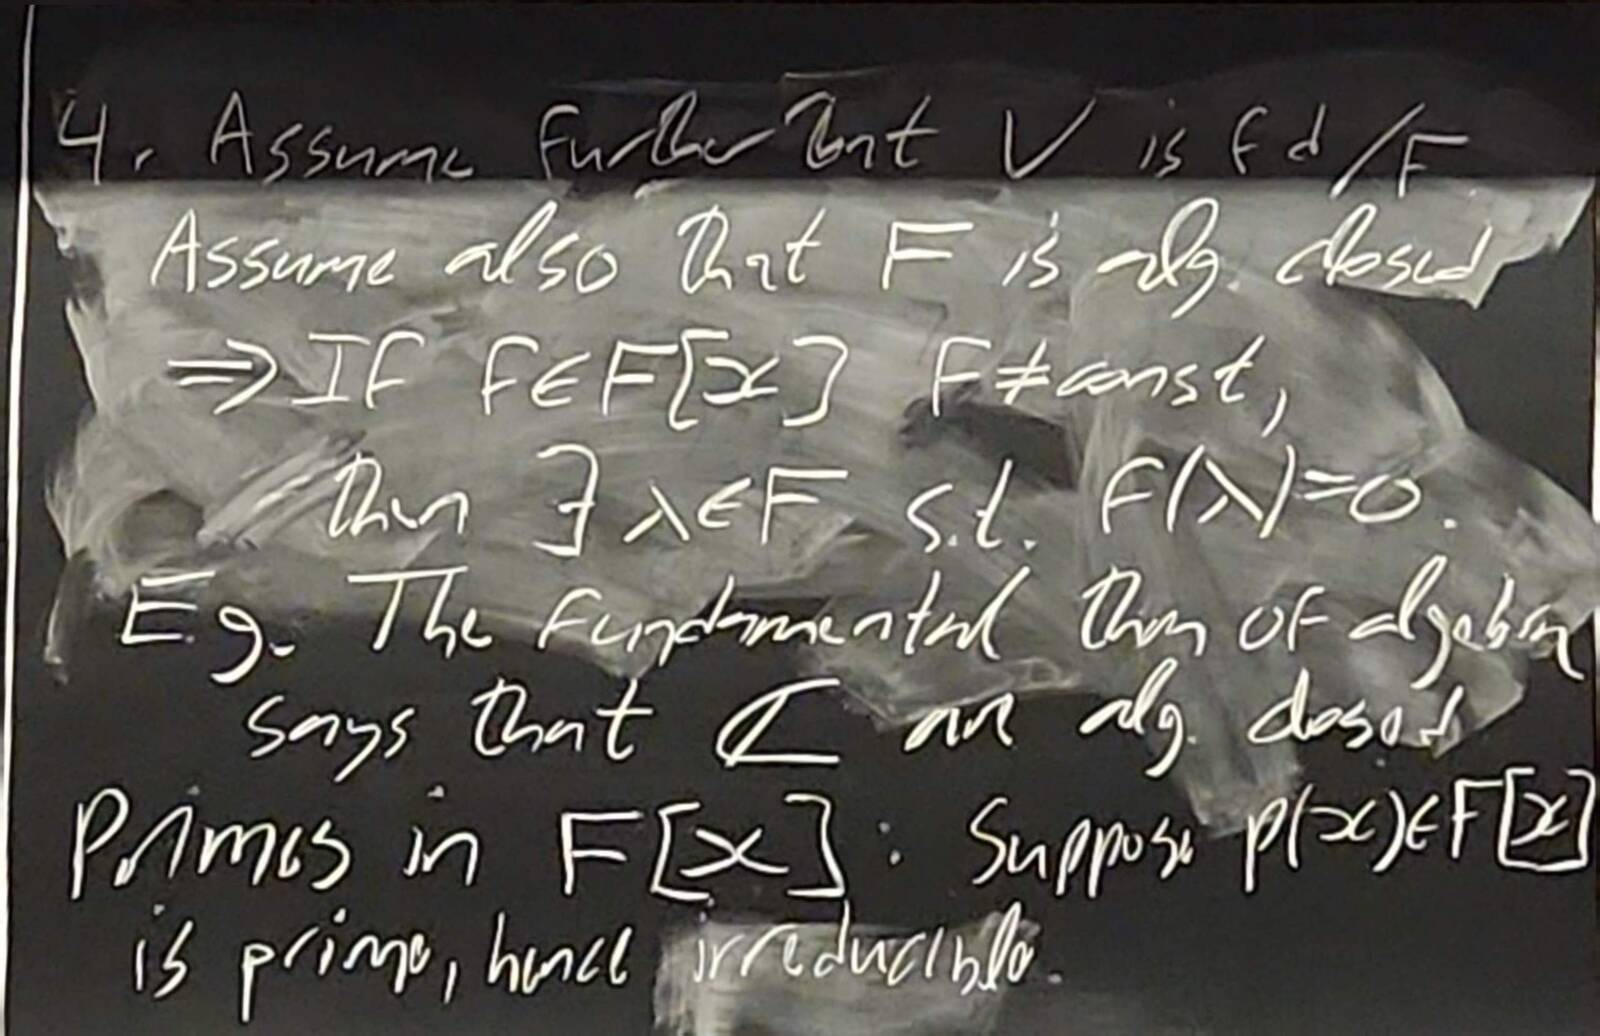 4. Assume further that V is fd/F
Assume also that F is alg. closed
⇒ If f∈F[x] f≠const,
then ∃ λ∈F s.t. f(λ)=0.
E.g. The fundamental thm of algebra
says that ℂ are alg. closed
Primes in F[x]: Suppose p(x)∈F[x]
is prime, hence irreducible.